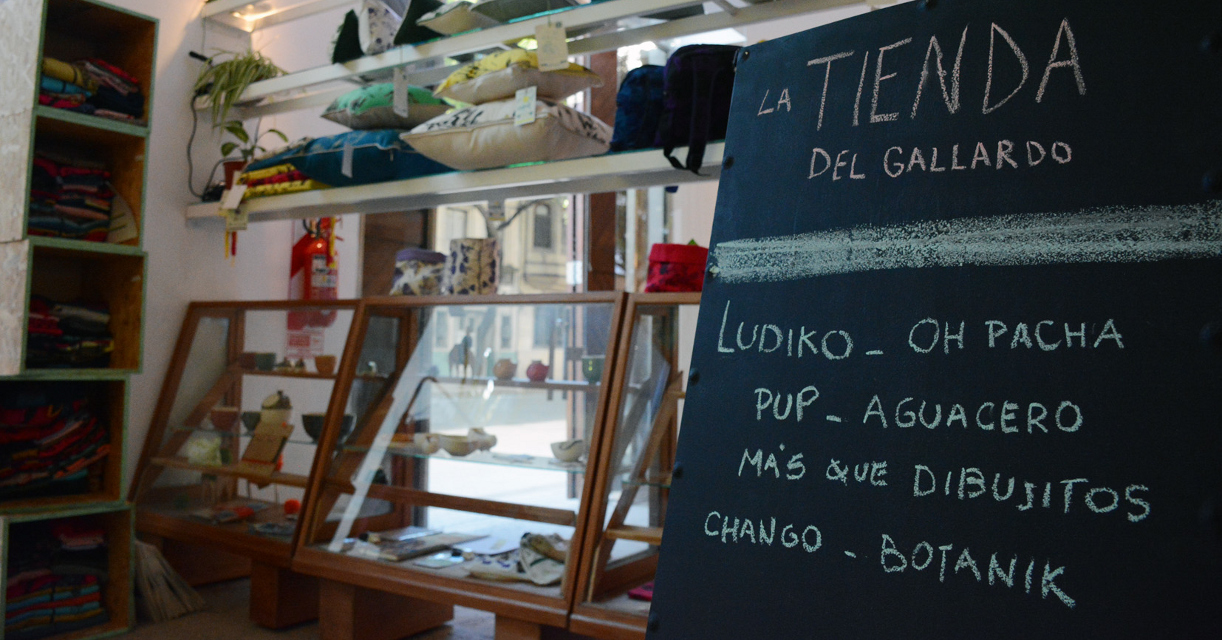 LA TIENDA
DEL GALLARDO
LUDIKO - OH PACHA
PUP - AGUACERO
MÁS QUE DIBUJITOS
CHANGO - BOTANIK